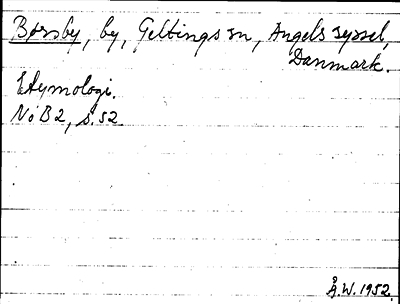 Børsby, by, Geltings sn, Angels syssel,
Danmark.
Etymologi.
NoB 2, s. 52
Å.W. 1952.